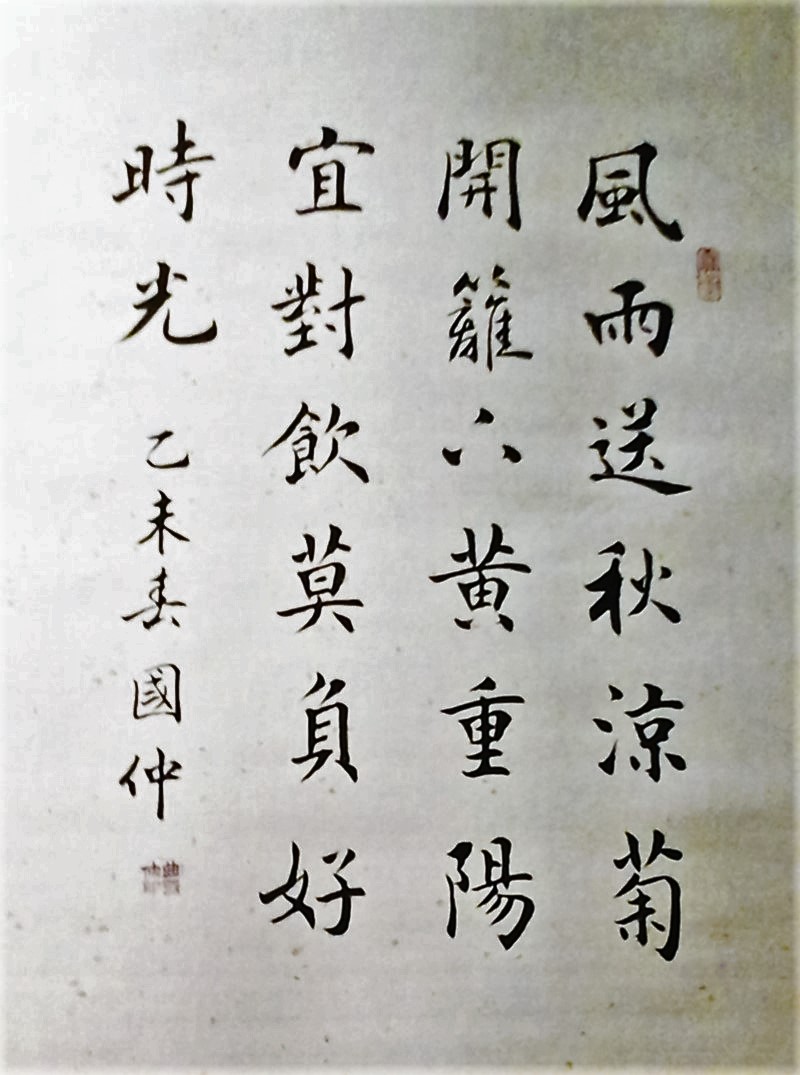 風雨送秋涼菊
開籬六黃重陽
宜對飲莫負好
時光 乙未春國仲